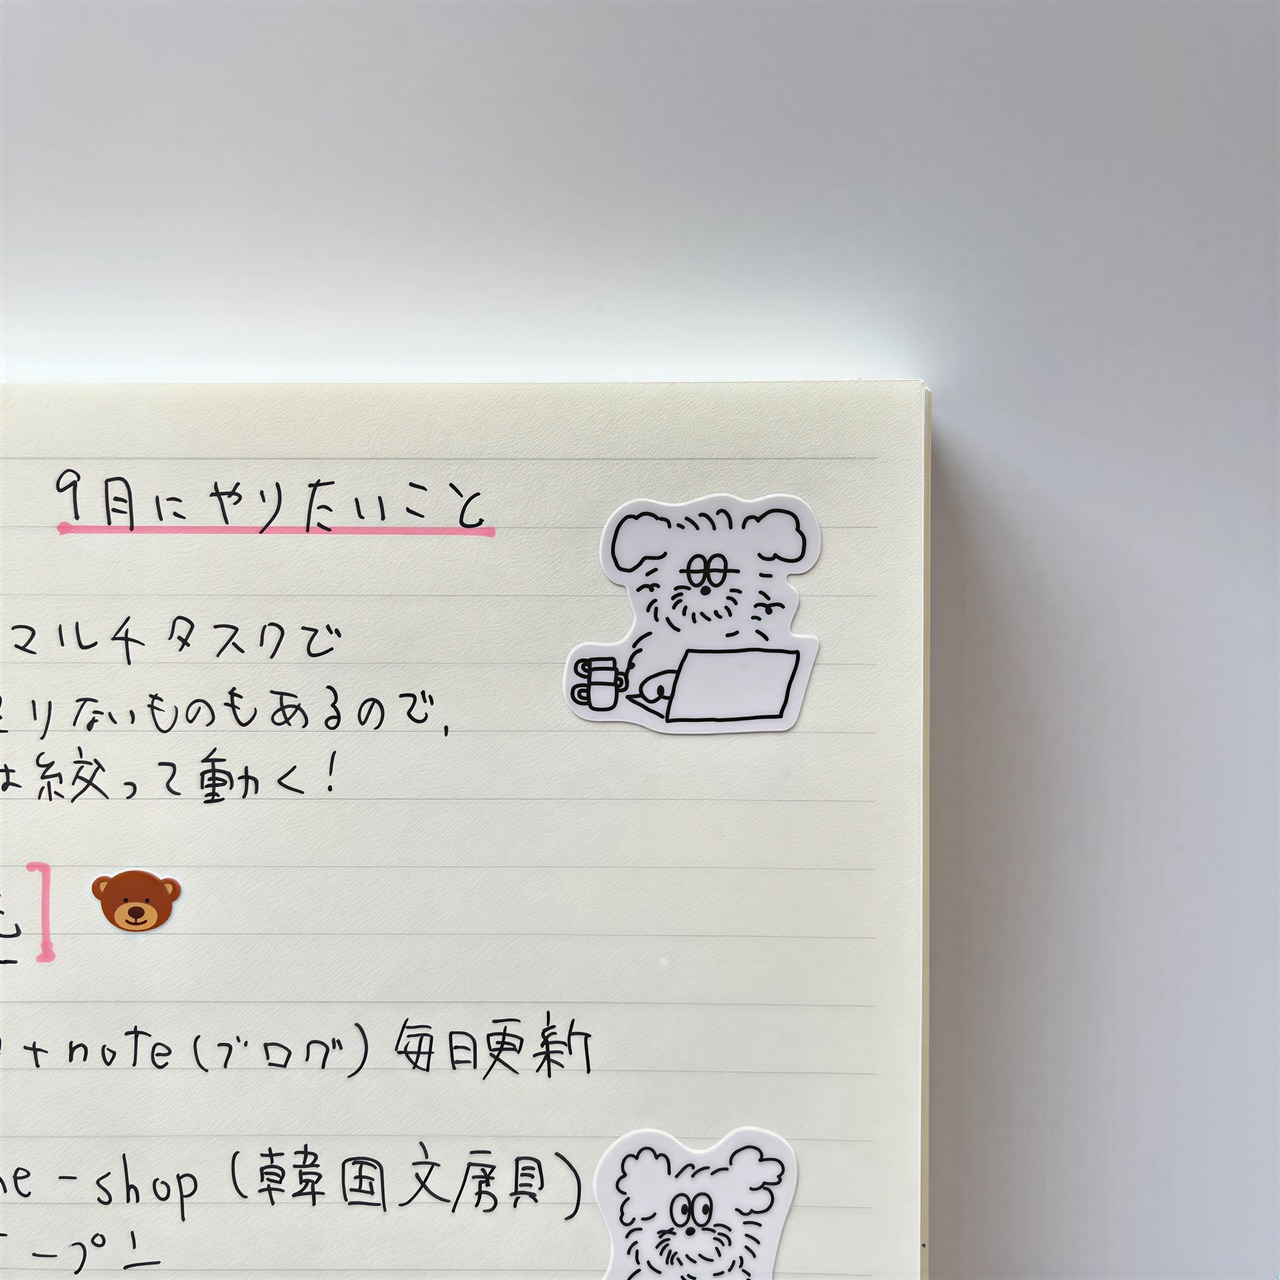 9月にやりたいこと
マルチタスクで
りないものもあるので,
絞って動く!
+note(ブログ)毎日更新
-shop(韓国文房具)